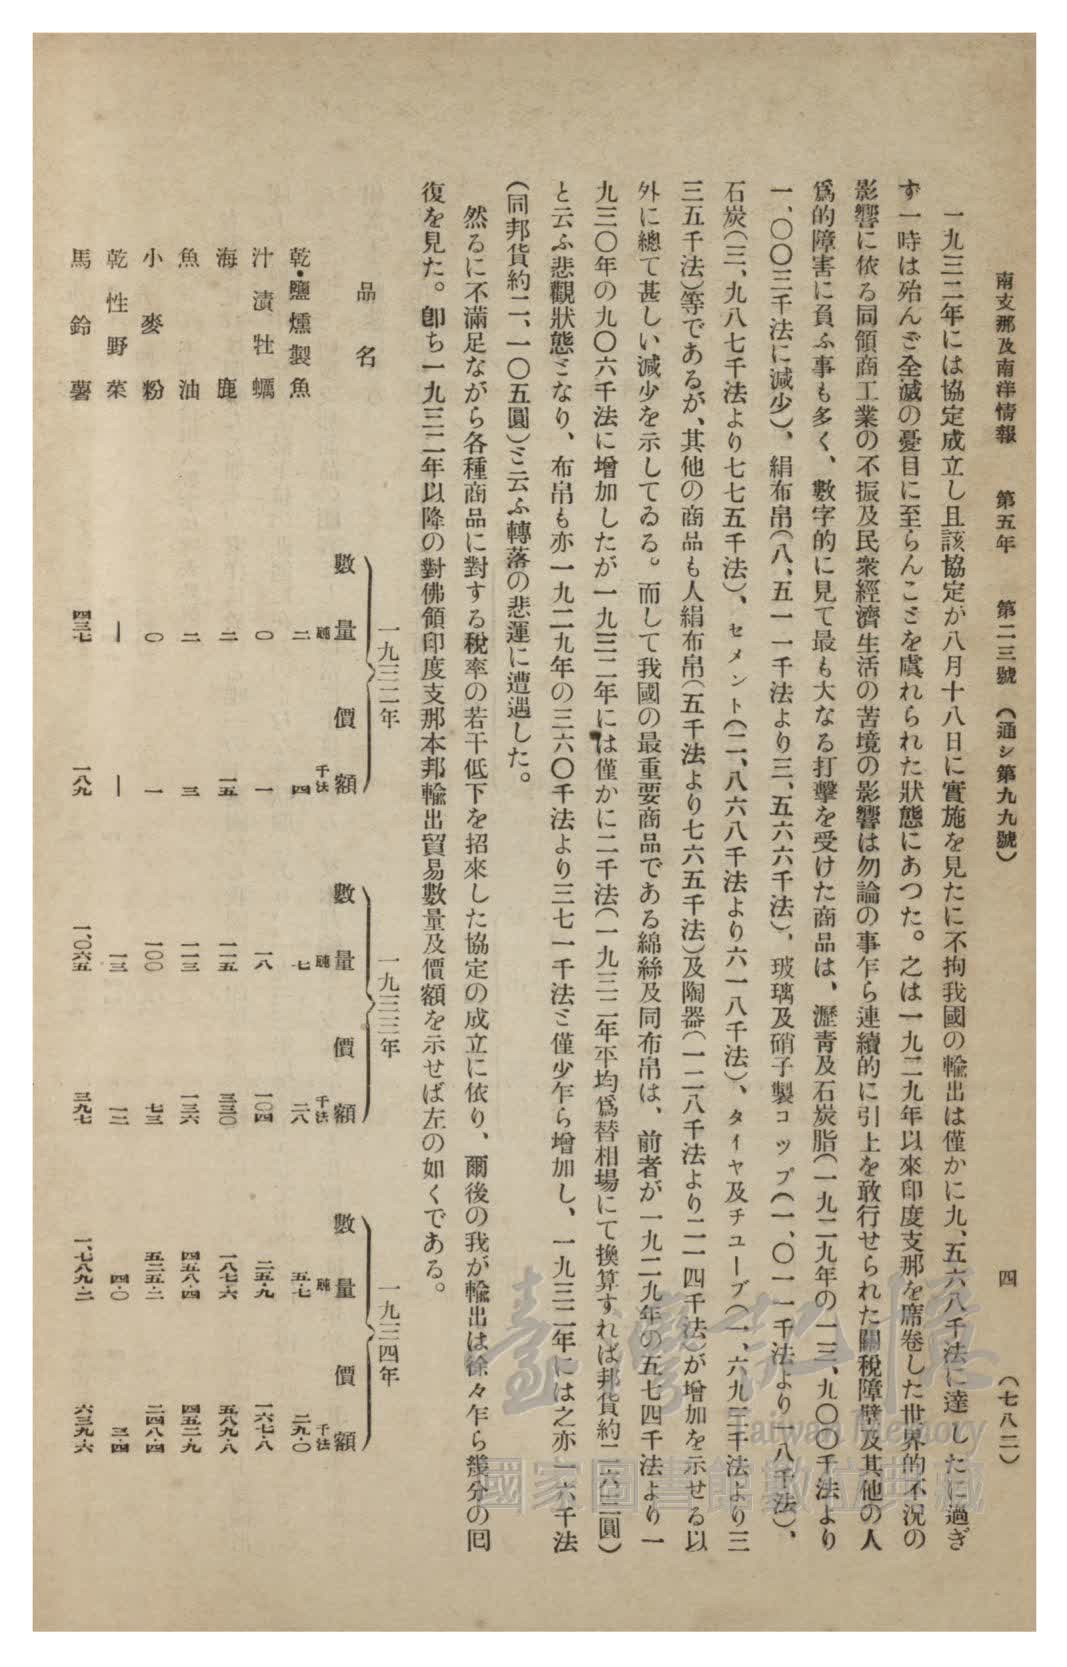 南支那及南洋情報　第五年　第二三號　（通シ第九九號）　四　（七八二）
一九三二年には協定成立し且該協定が八月十八日に實施を見たに不拘我國の輸出は僅かに九、五六八千法に達したに過ぎ
ず一時は殆んど全滅の憂目に至らんことを虞れられた狀態にあつた。之は一九二九年以來印度支那を席卷した世界的不況の
影響に依る同領商工業の不振及民衆經濟生活の苦境の影響は勿論の事乍ら連續的に引上を敢行せられた關稅障壁及其他の人
爲的障害に負ふ事も多く、數字的に見て最も大なる打擊を受けた商品は、瀝青及石炭脂（一九二九年の一三、九〇〇千法より
一、〇〇三千法に減少）、絹布帛（八、五一一千法より三、五六六千法）、玻璃及硝子製コップ（一、〇一一千法より一八千法）、
石炭（三、九八七千法より七七五千法）、セメント（二、八六八千法より六一八千法）、タイヤ及チューブ（一、六九三千法より三
三五千法）等であるが、其他の商品も人絹布帛（五千法より七六五千法）及陶器（一二八千法より二一四千法）が增加を示せる以
外に總て甚しい減少を示してゐる。而して我國の最重要商品である綿絲及同布帛は、前者が一九二九年の五七四千法より一
九三〇年の九〇六千法に增加したが一九三二年には僅かに二千法（一九三二年平均爲替相場にて換算すれば邦貨約二六三圓）
と云ふ悲觀狀態となり、布帛も亦一九二九年の三六〇千法より三七一千法と僅少乍ら增加し、一九三二年には之亦一六千法
（同邦貨約二、一〇五圓）と云ふ轉落の悲運に遭遇した。
然るに不滿足ながら各種商品に對する稅率の若干低下を招來した協定の成立に依り、爾後の我が輸出は徐々乍ら幾分の囘
復を見た。卽ち一九三二年以降の對佛領印度支那本邦輸出貿易數量及價額を示せば左の如くである。
一九三二年　一九三三年　一九三四年
品名　數量　價額　數量　價額　數量　價額
瓲　千法　瓲　千法　瓲　千法
乾・鹽燻製魚　二　四　七　二八　五・七　二九・〇
汁漬牡蠣　〇　一　一八　一〇四　二五・九　一六七・八
海鹿　二　一五　一一五　三三〇　一八七・六　五八九・八
魚油　二　三　一一三　一三六　四五八・四　四五二・九
小麥粉　〇　一　一〇〇　七三　五二五・二　二四八・四
乾性野菜　—　—　一三　一二　四・〇　三・四
馬鈴薯　四三七　一八九　一、〇六五　三九七　一、七八九・二　六三九・六
臺灣記憶
Taiwan Memory
國家圖書館數位典藏